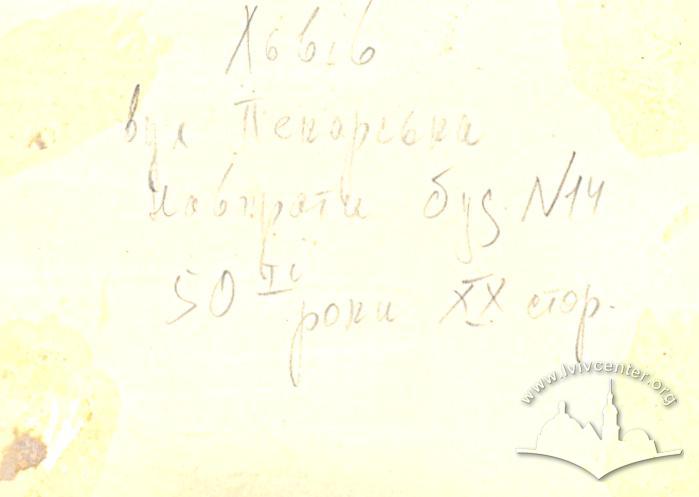 Львів
вул Пекарська
навпроти буд. N14
50ТІ роки ХХ стор.
www.lvivcenter.org